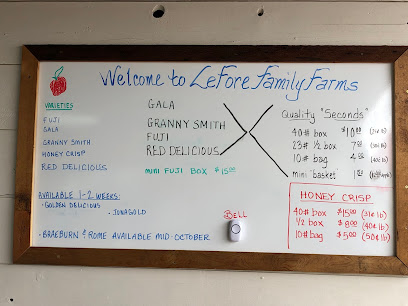 Welcome to LeFore Family Farms
VARIETIES
FUJI
GALA
GRANNY SMITH
HONEY CRISP
RED DELICIOUS
GALA
GRANNY SMITH
FUJI
RED DELICIOUS
MINI FUJI BOX $15.00
Quality "Seconds"
40# box $10.00
23# 1/2 box 7.00
10# bag 4.00
mini 'basket' 1.00
HONEY CRISP
40# box $15.00
1/2 box $9.00
10# bag $5.00 (50¢ lb)
AVAILABLE 1-2 WEEKS:
• GOLDEN DELICIOUS
• JONAGOLD
• BRAEBURN & ROME AVAILABLE MID-OCTOBER
BELL